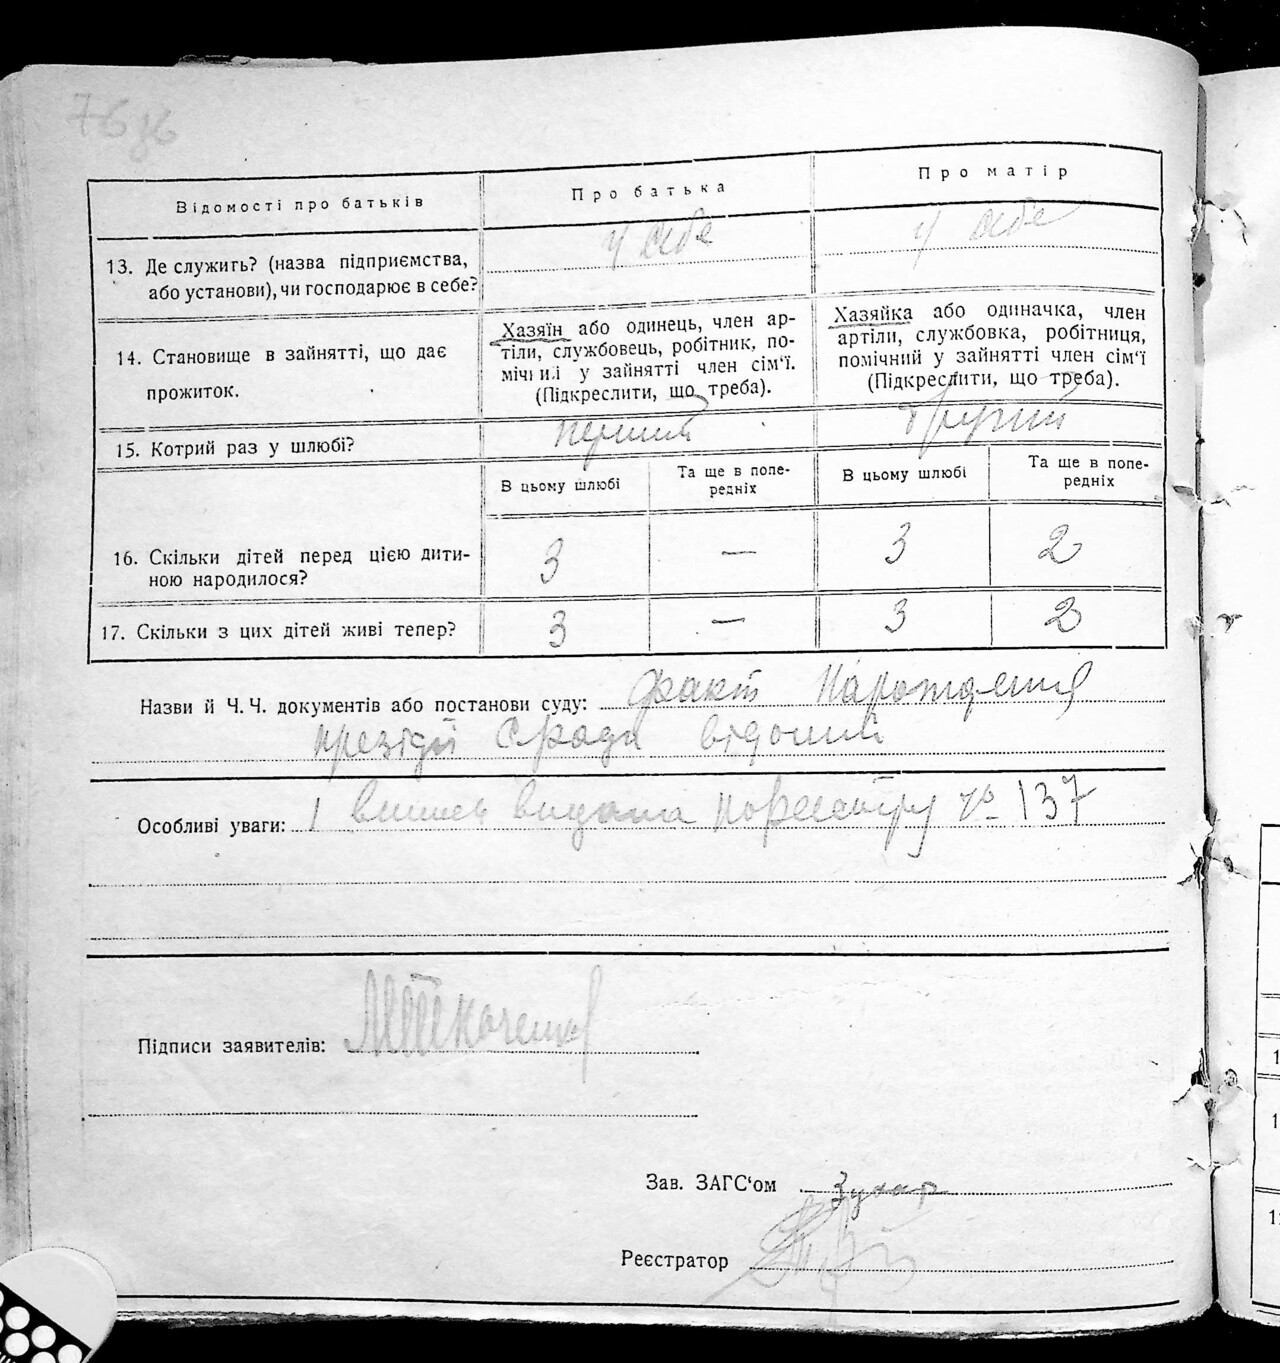 76 зв
Відомості про батьків
Про батька
Про матір
13. Де служить? (назва підприємства,
або установи), чи господарює в себе?
у себе
у себе
14. Становище в зайнятті, що дає
прожиток.
Хазяїн або одинець, член ар-
тіли, службовець, робітник, по-
мічний у зайнятті член сім'ї.
(Підкреслити, що треба).
Хазяйка або одиначка, член
артіли, службовка, робітниця,
помічний у зайнятті член сім'ї
(Підкреслити, що треба).
15. Котрий раз у шлюбі?
перший
другий
В цьому шлюбі
Та ще в попе-
редніх
В цьому шлюбі
Та ще в попе-
редніх
16. Скільки дітей перед цією дити-
ною народилося?
3
—
3
2
17. Скільки з цих дітей живі тепер?
3
—
3
2
Назви й Ч. Ч. документів або постанови суду: факт народження
презідії с/ради відомий
Особливі уваги: 1 випись видана по реєстру № 137
Підписи заявителів:
Зав. ЗАГС'ом
Реєстратор